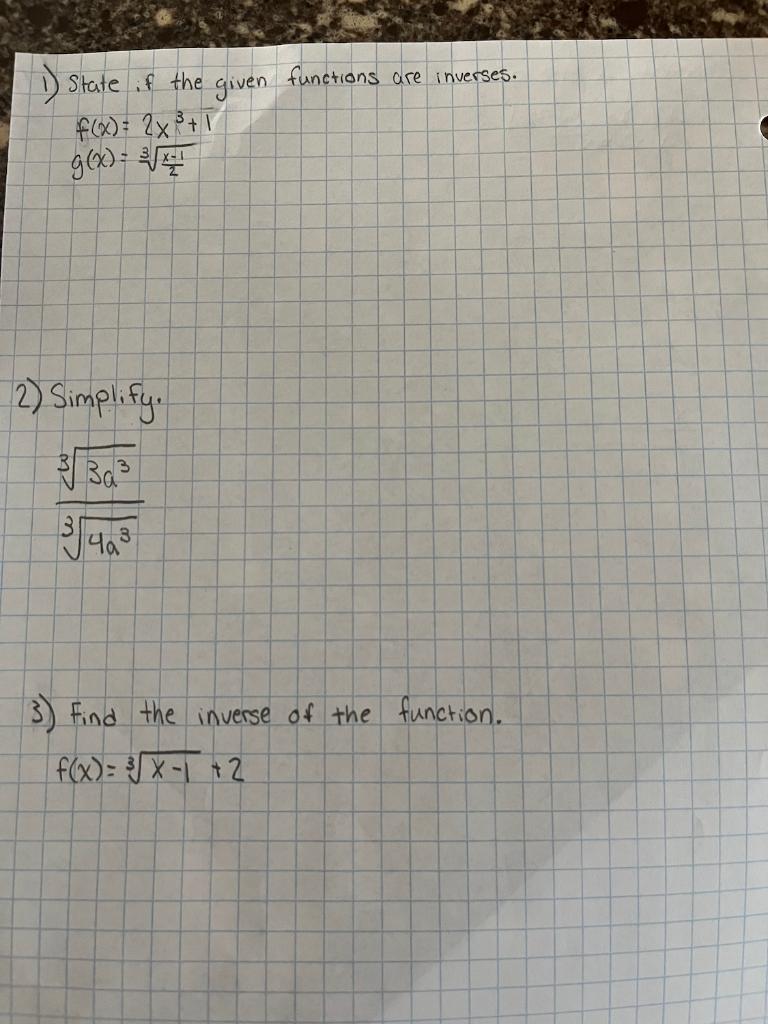 1) State if the given functions are inverses.
f(x) = 2x³ + 1
g(x) = ∛((x-1)/2)
2) Simplify.
∛(3a³)
∛(4a³)
3) Find the inverse of the function.
f(x) = ∛(x-1) + 2